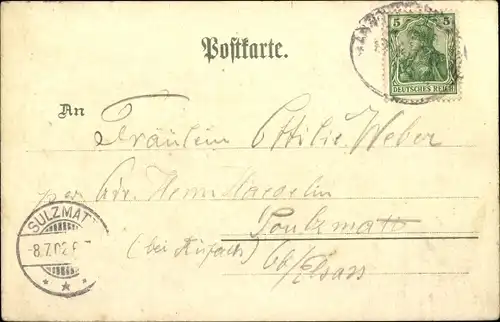 Postkarte.
5
DEUTSCHES REICH
An
Fräulein Ottilie Weber
per Adr. Henri Haegelin
Soulzmatt
SULZMATT
8.7.02
(bei Rufach)
Ob/Elsass